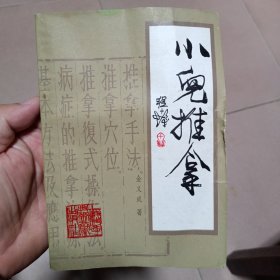 小兒推拿
推拿手法
推拿穴位
推拿復式操
病症的推拿
基本方法及應用
金义成 著